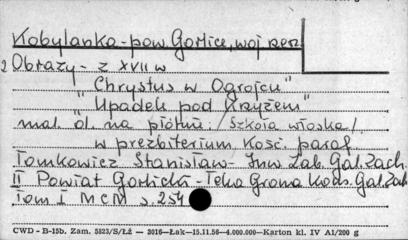 Kobylanka - pow. Gorlice, woj. rzesz
2 Obrazy - z XVII w
"Chrystus w Ogrojcu"
"Upadek pod Krzyżem"
mal. ol. na płótnie. /Szkoła włoska/
w prezbiterium kość. paraf
Tomkowicz Stanisław - Inw. Zab. Gal. Zach.
II Powiat Gorlicki - Teka Grona Kons. Gal. Zach
Tom I MCM s. 254
CWD - B-15b. Zam. 5823/S/ŁŻ — 3016—Łak—15.11.56—4.000.000—Karton kl. IV A1/200 g